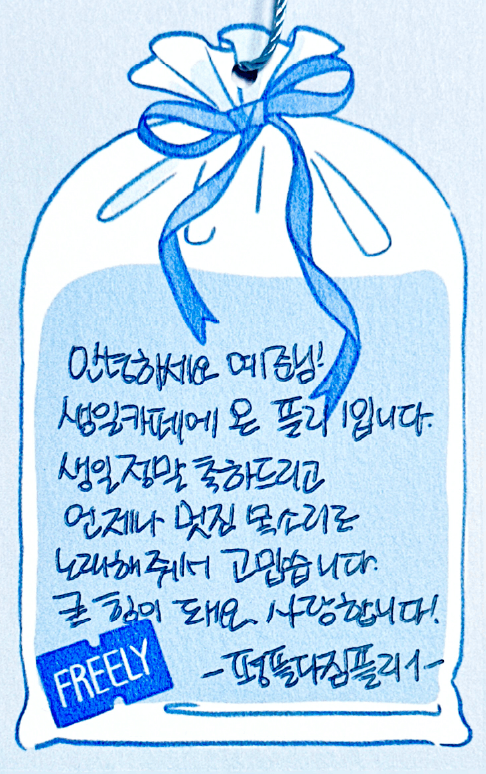 안녕하세요 예준님!
생일카페에 온 플리 1입니다.
생일 정말 축하드리고
언제나 멋진 목소리로
노래해주셔서 고맙습니다.
큰 힘이 돼요. 사랑합니다!
FREELY
-평플다짐플리1-